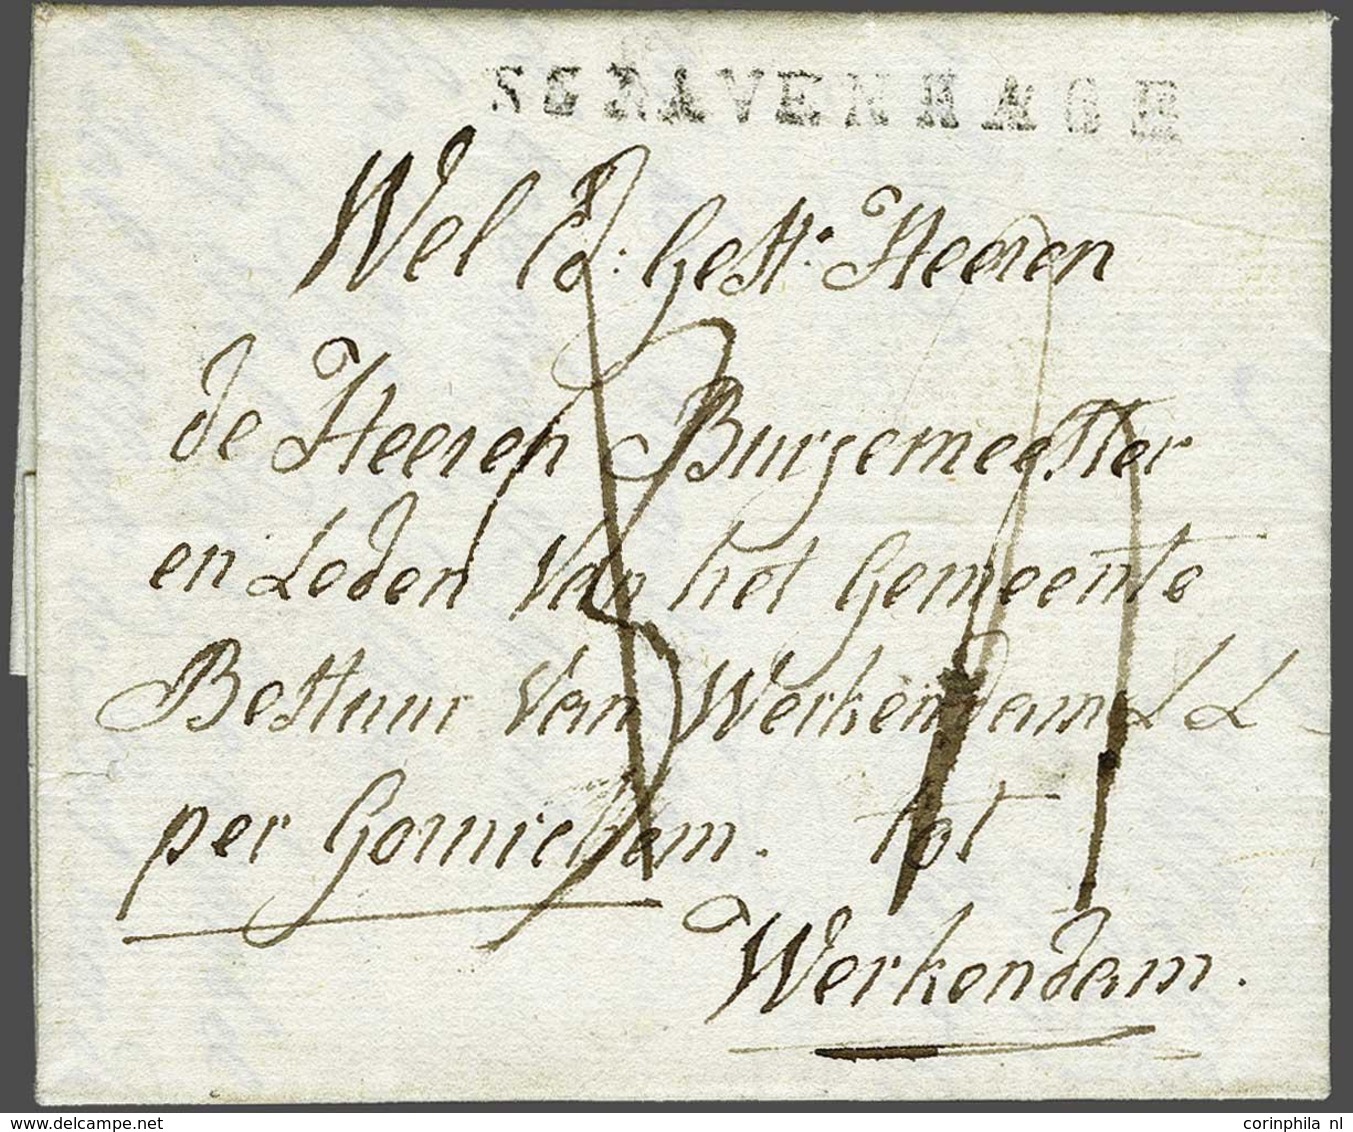 SGRAVENHAGE
Wel Ed: Gestr: Heeren
de Heeren Burgemeester
en Leden van het Gemeente
Bestuur van Werkendam LL
per Gornichem. tot
Werkendam.
www.delcampe.net
corinphila nl